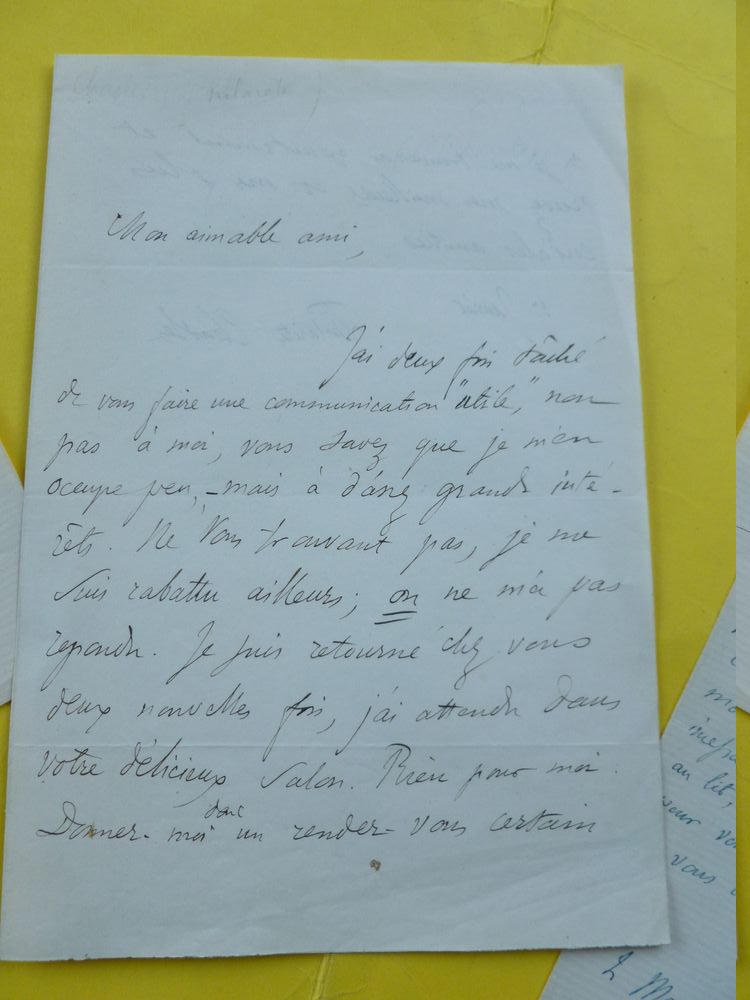 Mon aimable ami,
J'ai deux fois tâché
de vous faire une communication "utile," non
pas à moi, vous savez que je m'en
occupe peu, - mais à d'assez grands inté-
rêts. Ne vous trouvant pas, je me
suis rabattu ailleurs; on ne m'a pas
repondu. Je suis retourné chez vous
deux nouvelles fois, j'ai attendu dans
votre délicieux salon. Rien pour moi.
donc
Donner-moi un rendez-vous certain
au lit,
vous